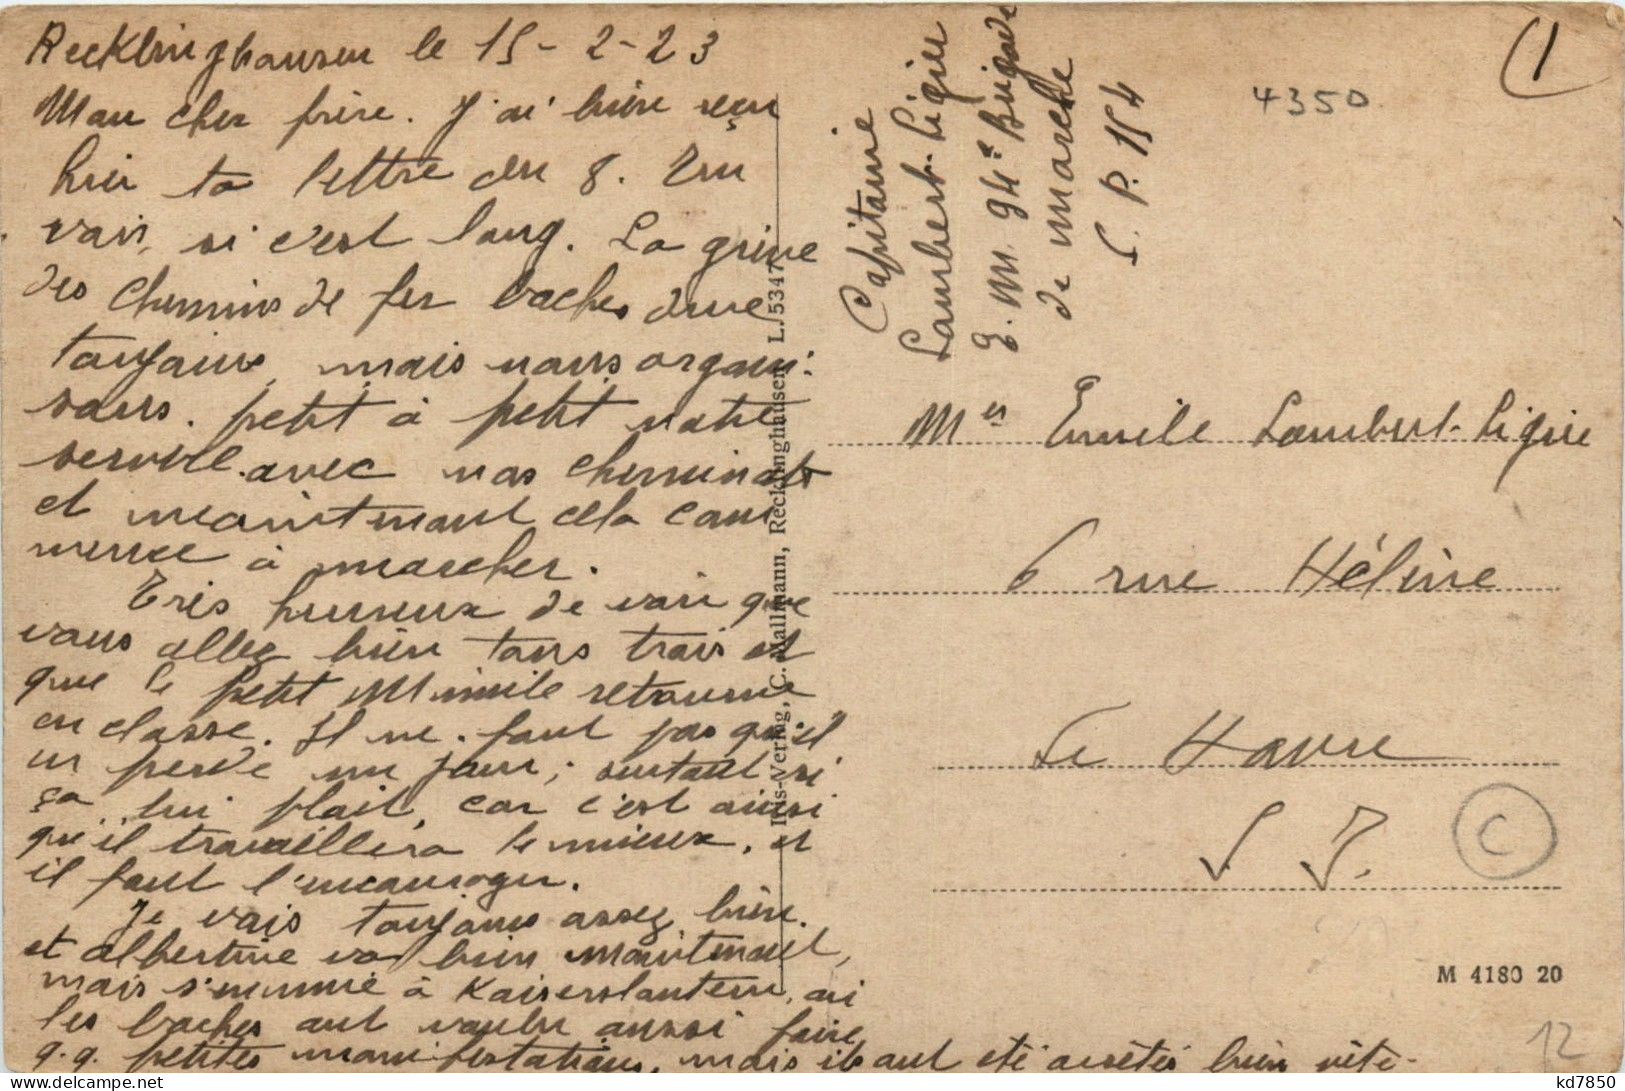 Recklinghausen le 15-2-23
Mon cher frère. J'ai bien reçu
hier ta lettre du 8. Tu
vois, si c'est long. La grève
des chemins de fer boches dure
toujours, mais nous organi-
sons. petit à petit notre
service. avec nos cheminots
et maintenant cela com
mence à marcher.
Très heureux de voir que
vous allez bien tous trois et
que le petit Mimile retourne
en classe. Il ne. faut pas qu'il
en perde un jour; surtout si
ça lui plait, car c'est ainsi
qu'il travaillera le mieux. et
il faut l'encourager.
Je vais toujours assez bien.
et Albertine va bien maintenant,
mais s'ennuie à Kaiserslautern, où
les boches ont voulu aussi faire
q.q. petites manifestations, mais ils ont été arrêtés bien vite.
Iris-Verlag, C. Mallmann, Recklinghausen L. 5347
Capitaine
Lambert-Ligier
E. M. 94e Brigade
de marche
S. P. 154
4350
1
Mr Emile Lambert-Ligier
6 rue Hélène
Le Havre
S I.
C
M 4180 20
12
delcampe.net
kd7850